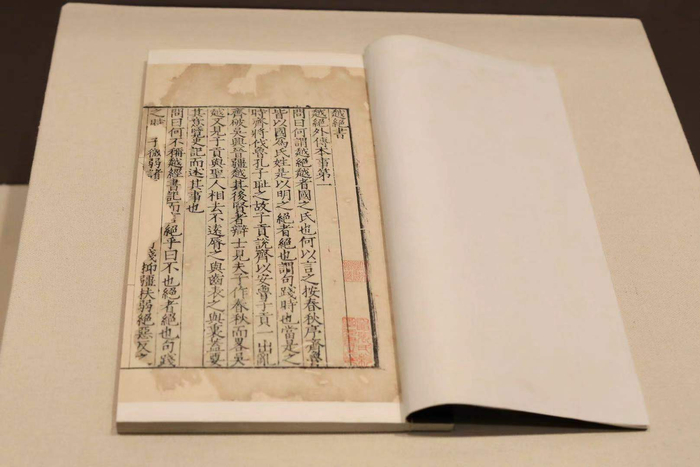 越絕書
越絕外傳本事第一
問曰何謂越絕越者國之氏也何以言之按春秋序齊魯
皆以國爲氏姓是以明之絕者絕也謂句踐時也當是之
時齊將伐魯孔子恥之故子貢說齊以安魯子貢一出亂
齊破吳興晉彊越其後賢者辯士見夫子作春秋而畧吳
越又見子貢與聖人相去不遠脣之與齒表之與裏蓋要
其意覽史記而述其事也
問曰何不稱越經書記而言絕乎曰不也絕者絕也句踐
之時 子微弱諸 踐抑彊扶弱絕惡反之